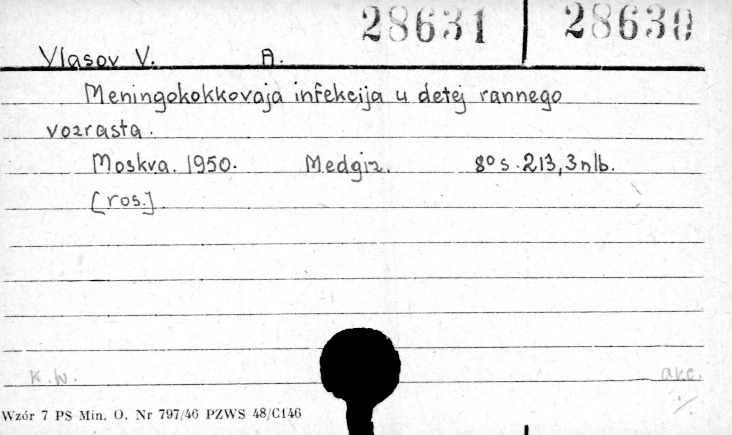 28631 28630
Vlasov V. A.
Meningokokkovaja infekcija u detej rannego
vozrasta.
Moskva. 1950. Medgiz. 8° s. 213, 3 nlb.
[ros.].
K.W. akc.
Wzór 7 PS Min. O. Nr 797/46 PZWS 48/C146